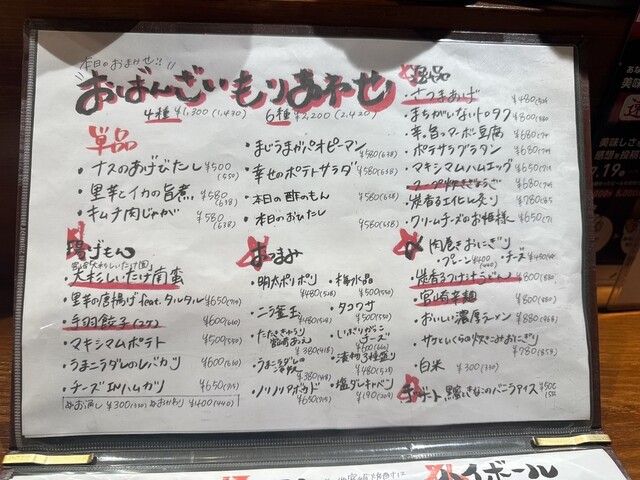 本日のおまかせ!!
おばんざいもりあわせ
4種 ¥1,300(1,430) 6種 ¥2,200(2,420)
単品
・ナスのあげびたし ¥500(550)
・里芋とイカの旨煮 ¥580(638)
・キムチ肉じゃが ¥580(638)
・まじうまがパオピーマン ¥580(638)
・幸せのポテトサラダ ¥580(638)
・本日の酢のもん ¥580(638)
・本日のおひたし ¥580(638)
逸品
・さつまあげ ¥480(528)
・まちがいないトロタク ¥800(880)
・辛旨マーボ豆腐 ¥680(748)
・ポテサラグラタン ¥680
・マキシマムハムエッグ ¥650(715)
¥680
¥780
・クリームチーズのお姫様 ¥650(71
揚げもん
・大杉しいたけ南蛮
・里芋の唐揚げ feat.タルタル ¥650(715)
・手羽餃子(3コ) ¥600(660)
・マキシマムポテト ¥500(550)
・うまニラダレのレバカツ ¥600(660)
・チーズINハムカツ ¥650(715)
※お通し ¥300(330) おかわり ¥400(440)
おつまみ
・明太ポリポリ ¥480(528)
・ニラ釜玉 ¥500(550)
・たたききゅうり ¥380(418)
・うまニラダレの ¥380(418)
・ノリノリアボカド ¥650(715)
・梅水晶 ¥500(550)
・タコワサ ¥500(550)
・いぶりがっこチーズ ¥600(660)
・漬物3種盛り ¥480(528)
・塩ダレキャベツ ¥190(209)
〆
・肉巻きおにぎり
プレーン ¥400(440) ・チーズ
¥800(880)
・宮崎辛麺 ¥800(880)
・おいしい濃厚ラーメン ¥880(968)
・サクといくらの炊きこみおにぎり ¥780(858)
・白米 ¥300(330)
デザート 黒蜜きなこのバニラアイス ¥500(550)
ハイボール